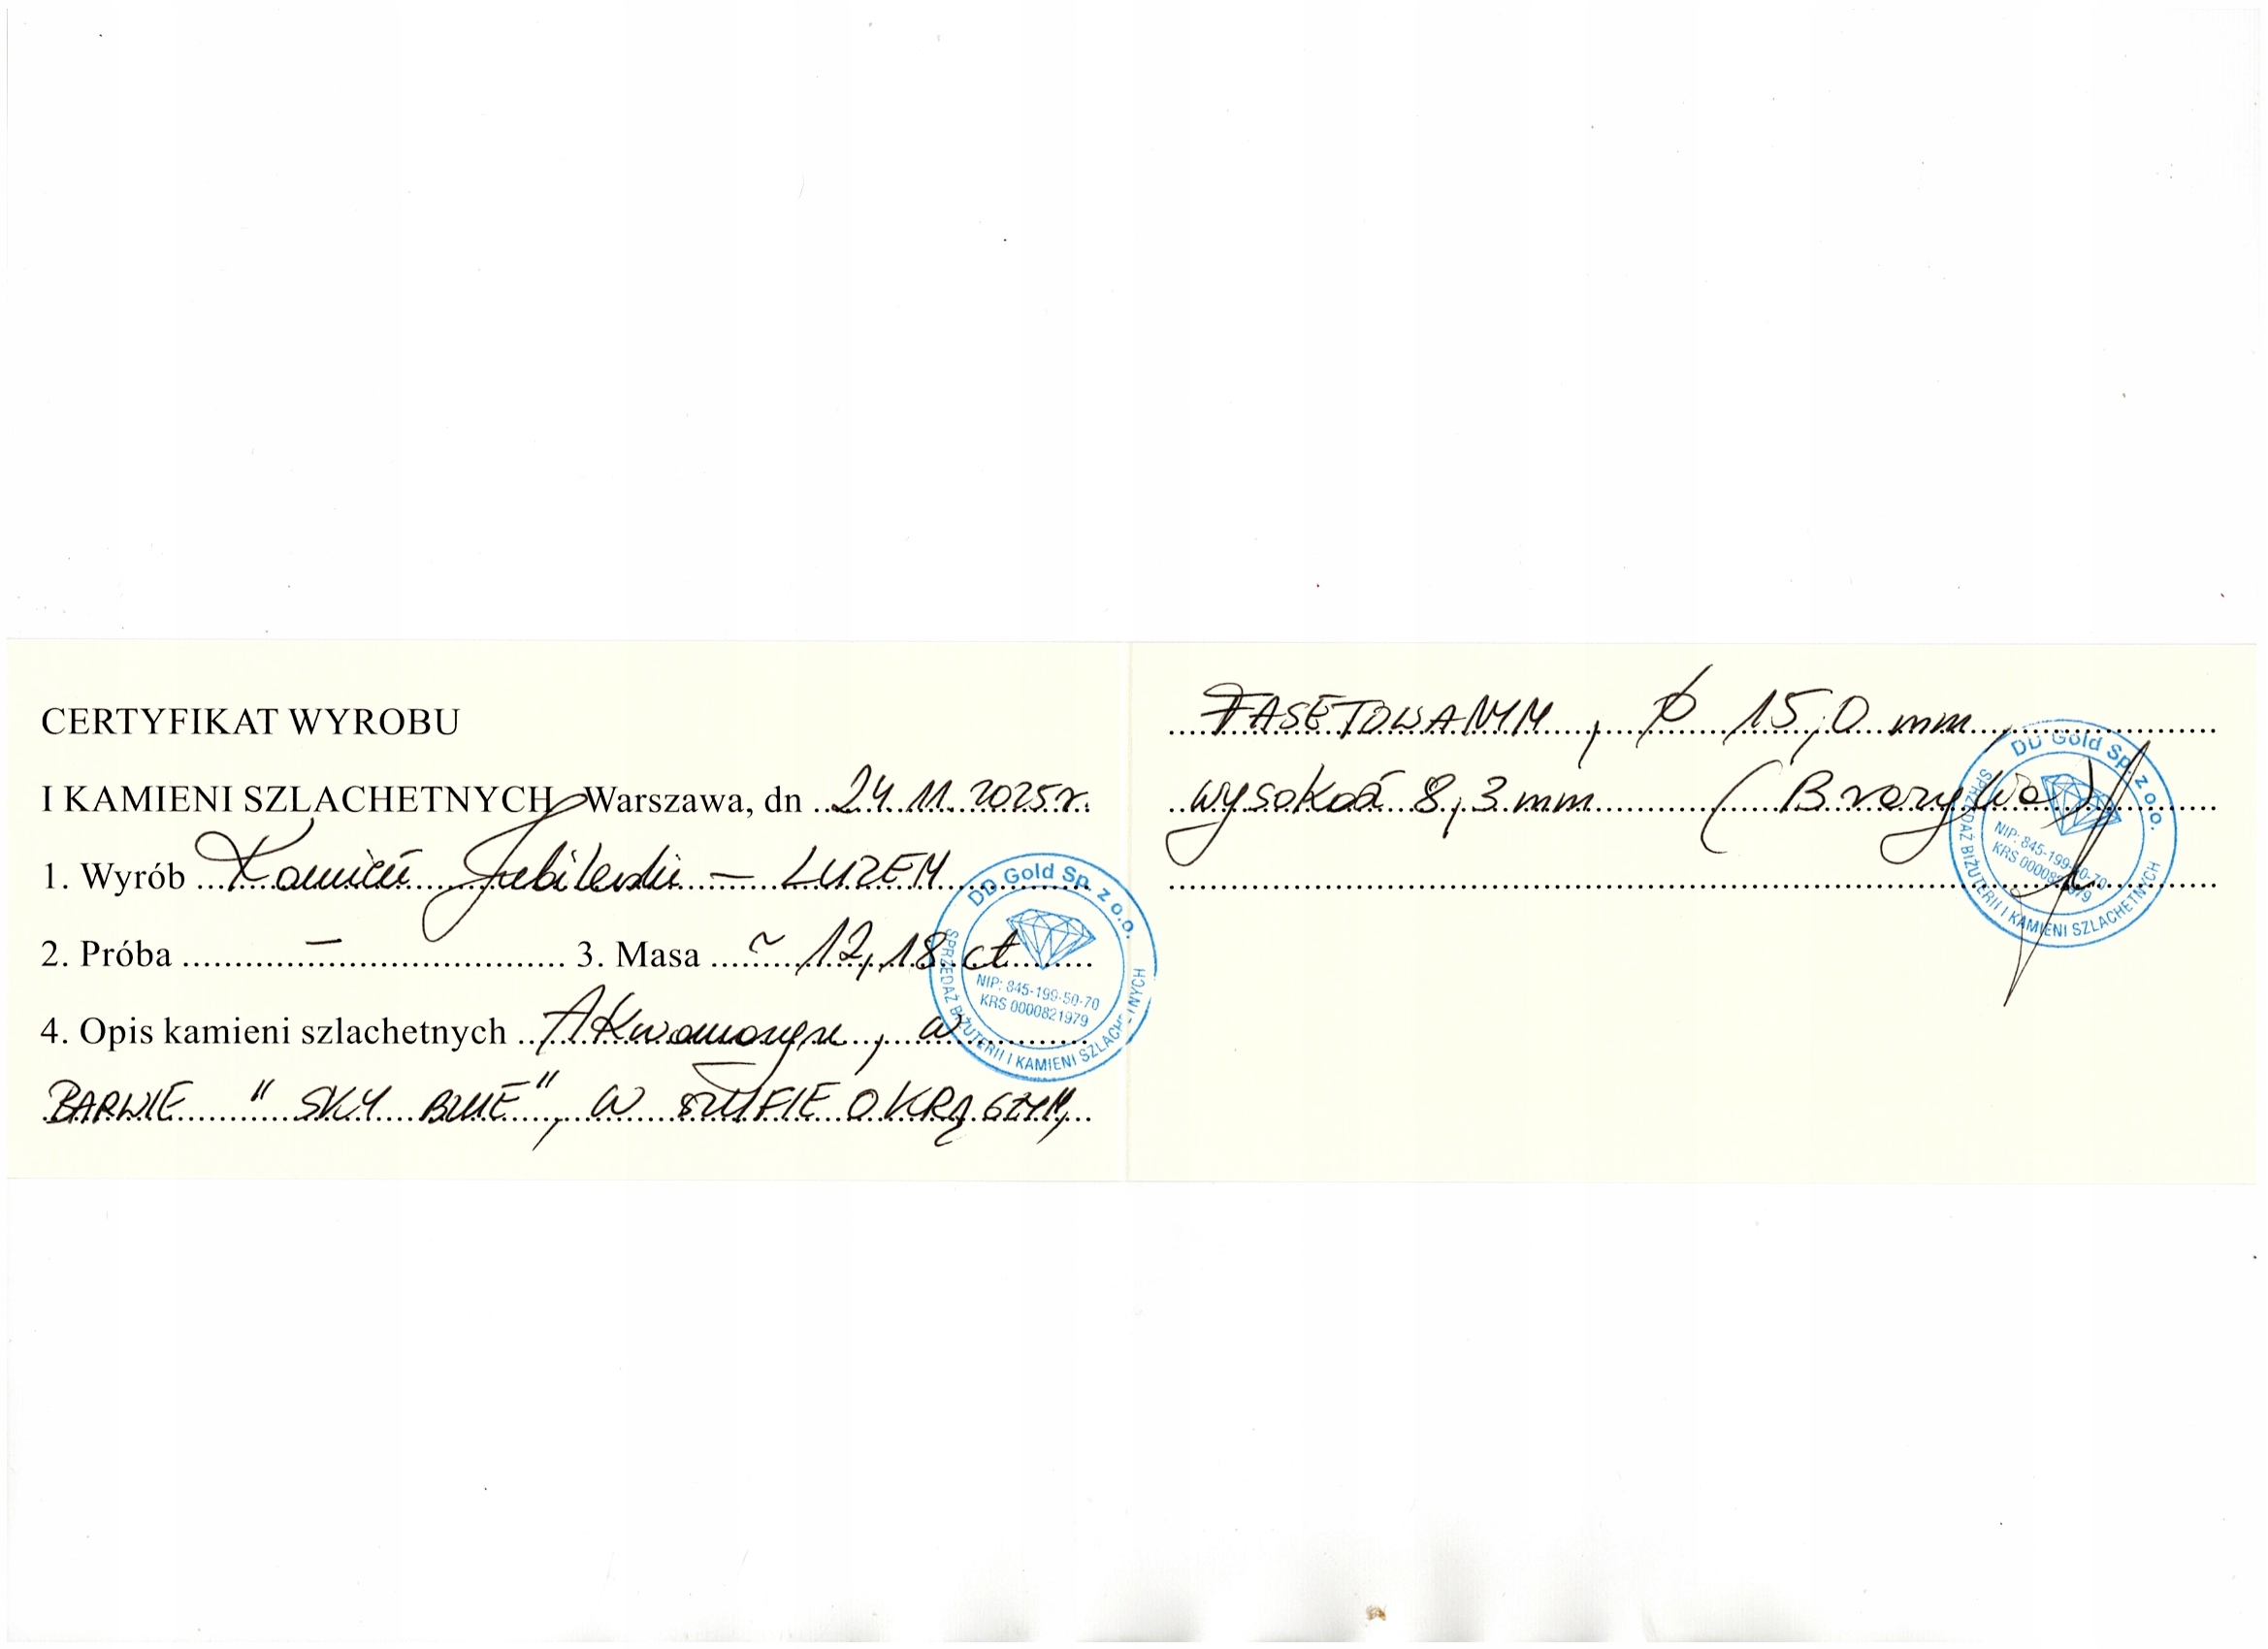 CERTYFIKAT WYROBU
I KAMIENI SZLACHETNYCH Warszawa, dn 24.11.2025r.
1. Wyrób Kamień Jubilerski – LUZEM
2. Próba – 3. Masa ~ 12,18 ct
4. Opis kamieni szlachetnych Akwamaryn, w
BARWIE "SKY BLUE", W SZLIFIE OKRĄGŁYM,
FASETOWANYM, ø 15,0 mm,
wysokość 8,3 mm (Brazylia)
DD Gold Sp. z o.o.
SPRZEDAŻ BIŻUTERII I KAMIENI SZLACHETNYCH
NIP: 845-199-50-70
KRS 0000821979
DD Gold Sp. z o.o.
SPRZEDAŻ BIŻUTERII I KAMIENI SZLACHETNYCH
NIP: 845-199-50-70
KRS 0000821979